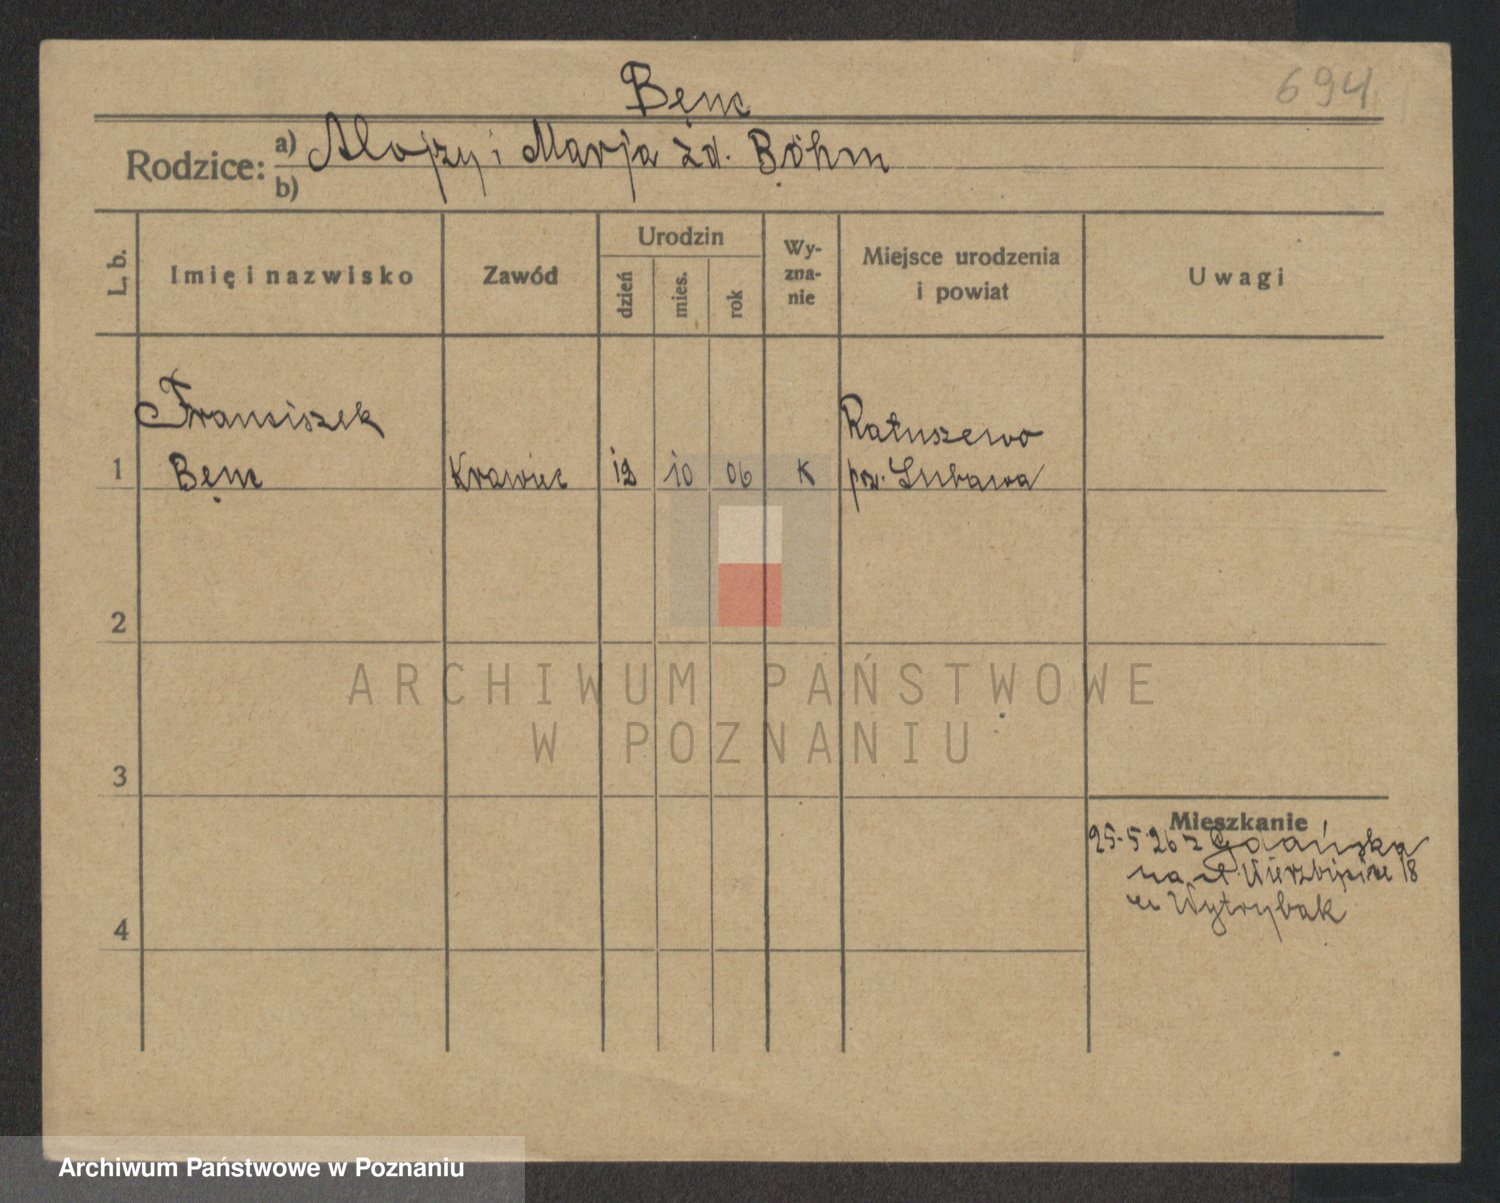 694
Bęnc
Rodzice: a) Alojzy i Marja zd. Böhm
b)
L. b.
Imię i nazwisko
Zawód
Urodzin
dzień
mies.
rok
Wy-
zna-
nie
Miejsce urodzenia
i powiat
Uwagi
Franciszek
Ratuszewo
1 Bęnc Krawiec 12 10 06 K pw. Lubawa
2
ARCHIWUM PAŃSTWOWE
W POZNANIU
3
Mieszkanie
25.5.26 z Gdańska
na Wierzbięcice 18
Wytrybak
4
Archiwum Państwowe w Poznaniu